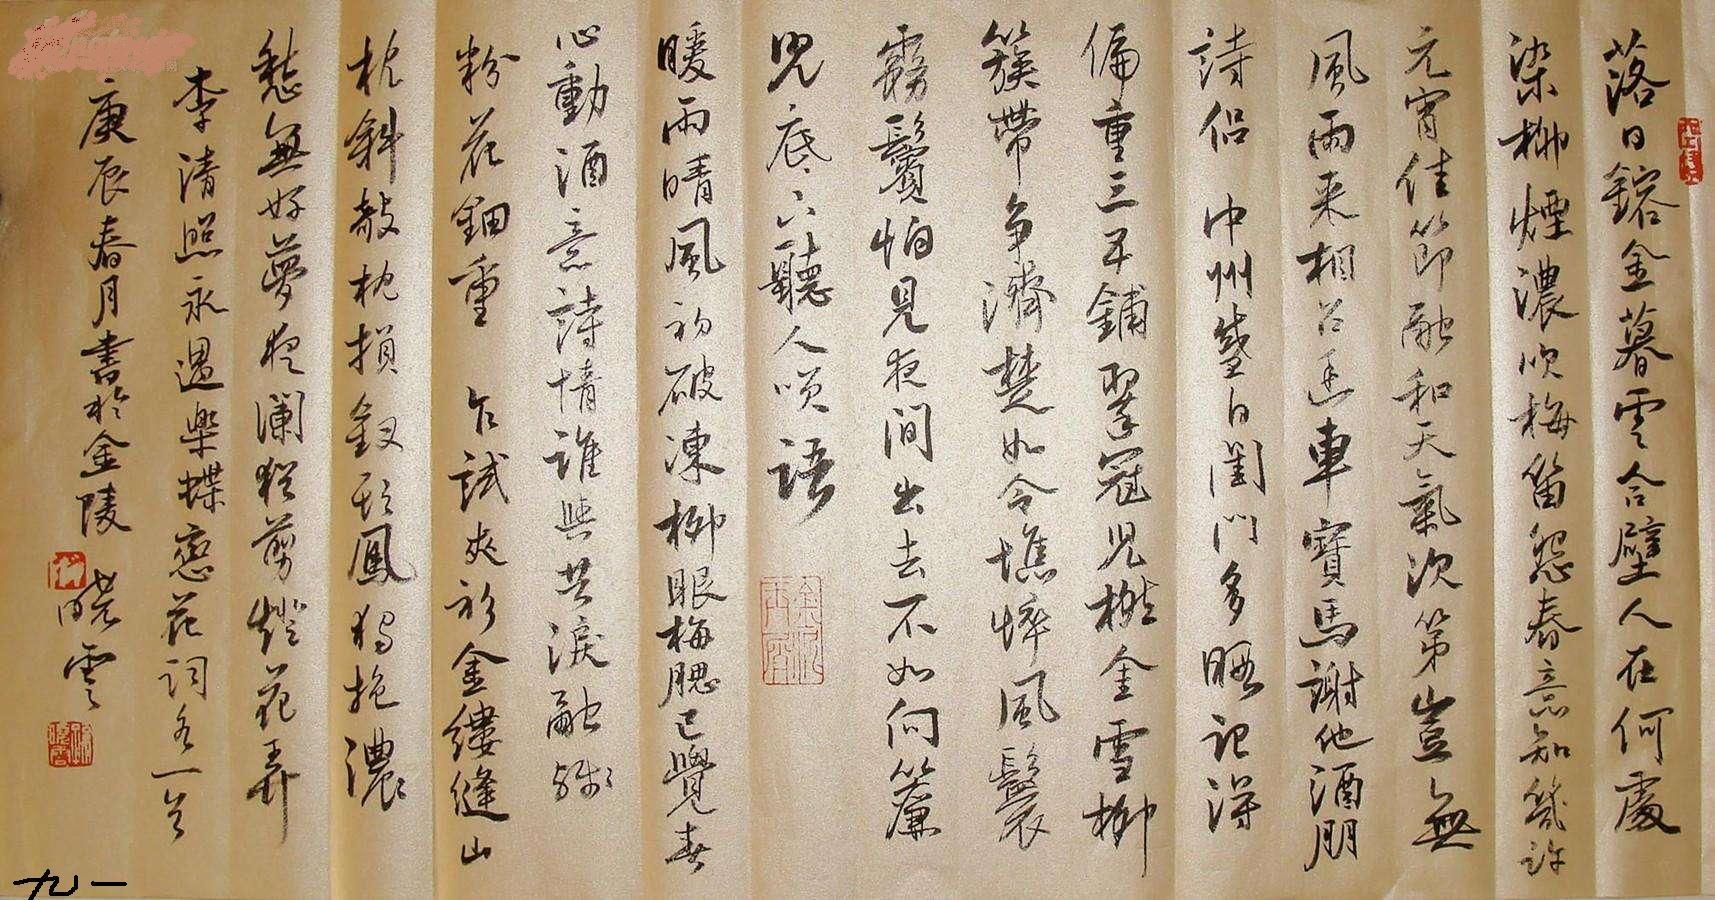 落日鎔金暮雲合璧人在何處
染柳煙濃吹梅笛怨春意知幾許
元宵佳節融和天氣次第豈無
風雨来相召香車寶馬謝他酒朋
詩侣中州盛日閨門多暇記得
偏重三五鋪翠冠兒撚金雪柳
簇帶争濟楚如今憔悴風鬟
霧鬢怕見夜间出去不如向簾
兒底下聽人笑语
暖雨晴風初破凍柳眼梅腮已覺春
心動酒意詩情誰與共淚融殘
粉花鈿重乍試夾衫金縷縫山
枕斜敧枕損釵頭鳳獨抱濃
愁無好夢夜瀾猶剪燈花弄
李清照永遇樂蝶戀花词各一首
庚辰春月書於金陵
晓雲
九一